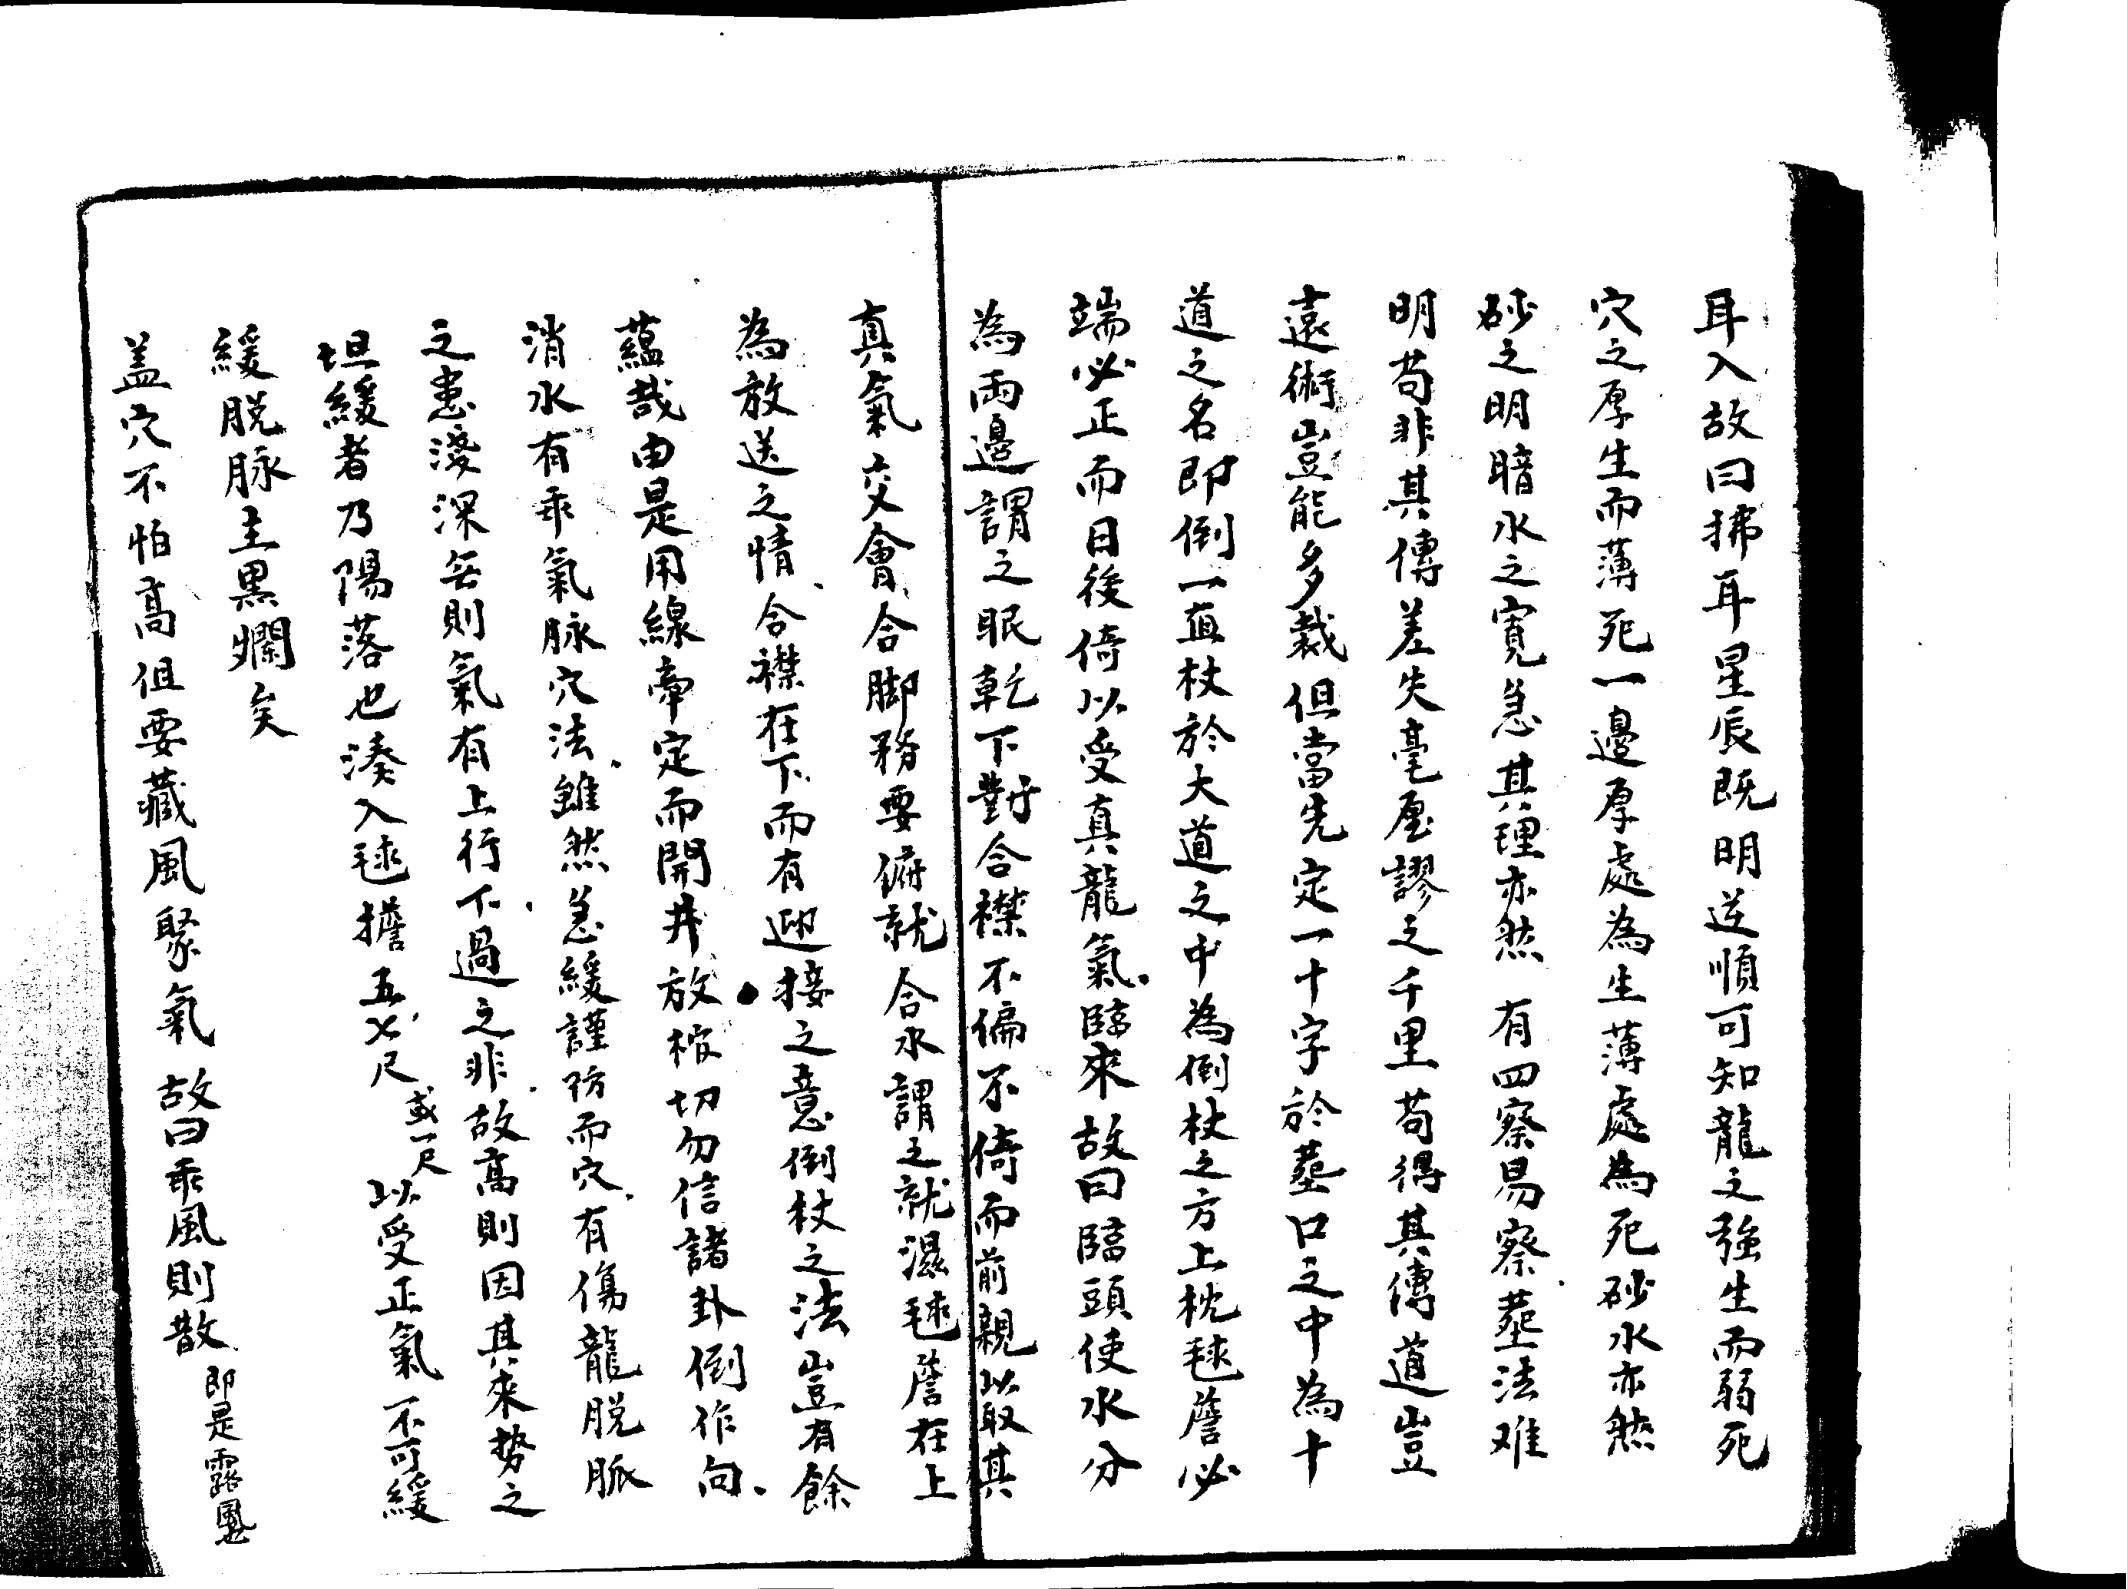 耳入故曰拂耳星辰既明逆順可知龍之強生而弱死
穴之厚生而薄死一邊厚處為生薄處為死砂水亦然
砂之明暗水之寬急其理亦然有四察易察塟法难
明苟非其傳差失毫厘謬之千里苟得其傳道豈
遠術豈能多裁但當先定一十字於塟口之中為十
道之名即倒一直杖於大道之中為倒杖之方上枕毬簷必
端必正而日後倚以受真龍氣臨來故曰臨頭使水分
為兩邊謂之眠乾下對合襟不偏不倚而前親以取其
真氣交會合脚務要俯就合水謂之就濕毬簷在上
為放送之情合襟在下而有迎接之意倒杖之法豈有餘
蘊哉由是用線牽定而開井放棺切勿信諸卦倒作向
消水有乖氣脉穴法雖然急緩謹防而穴有傷龍脱脈
之患淺深否則氣有上行不過之非故高則因其來势之
坦緩者乃陽落也湊入毬擔五七尺或一尺以受正氣不可緩
緩脱脉主黒爛矣
盖穴不怕高但要藏風聚氣故曰乘風則散即是露風